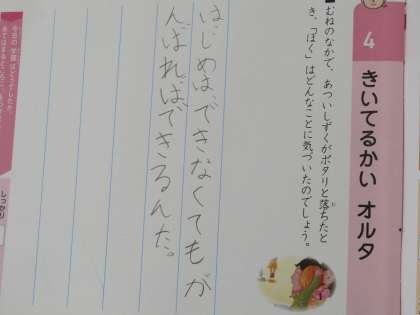 4 きいてるかい オルタ
■むねのなかで、あついしずくがポタリと落ちたと
き、「ぼく」はどんなことに気づいたのでしょう。
はじめはできなくてもが
んばればできるんだ。